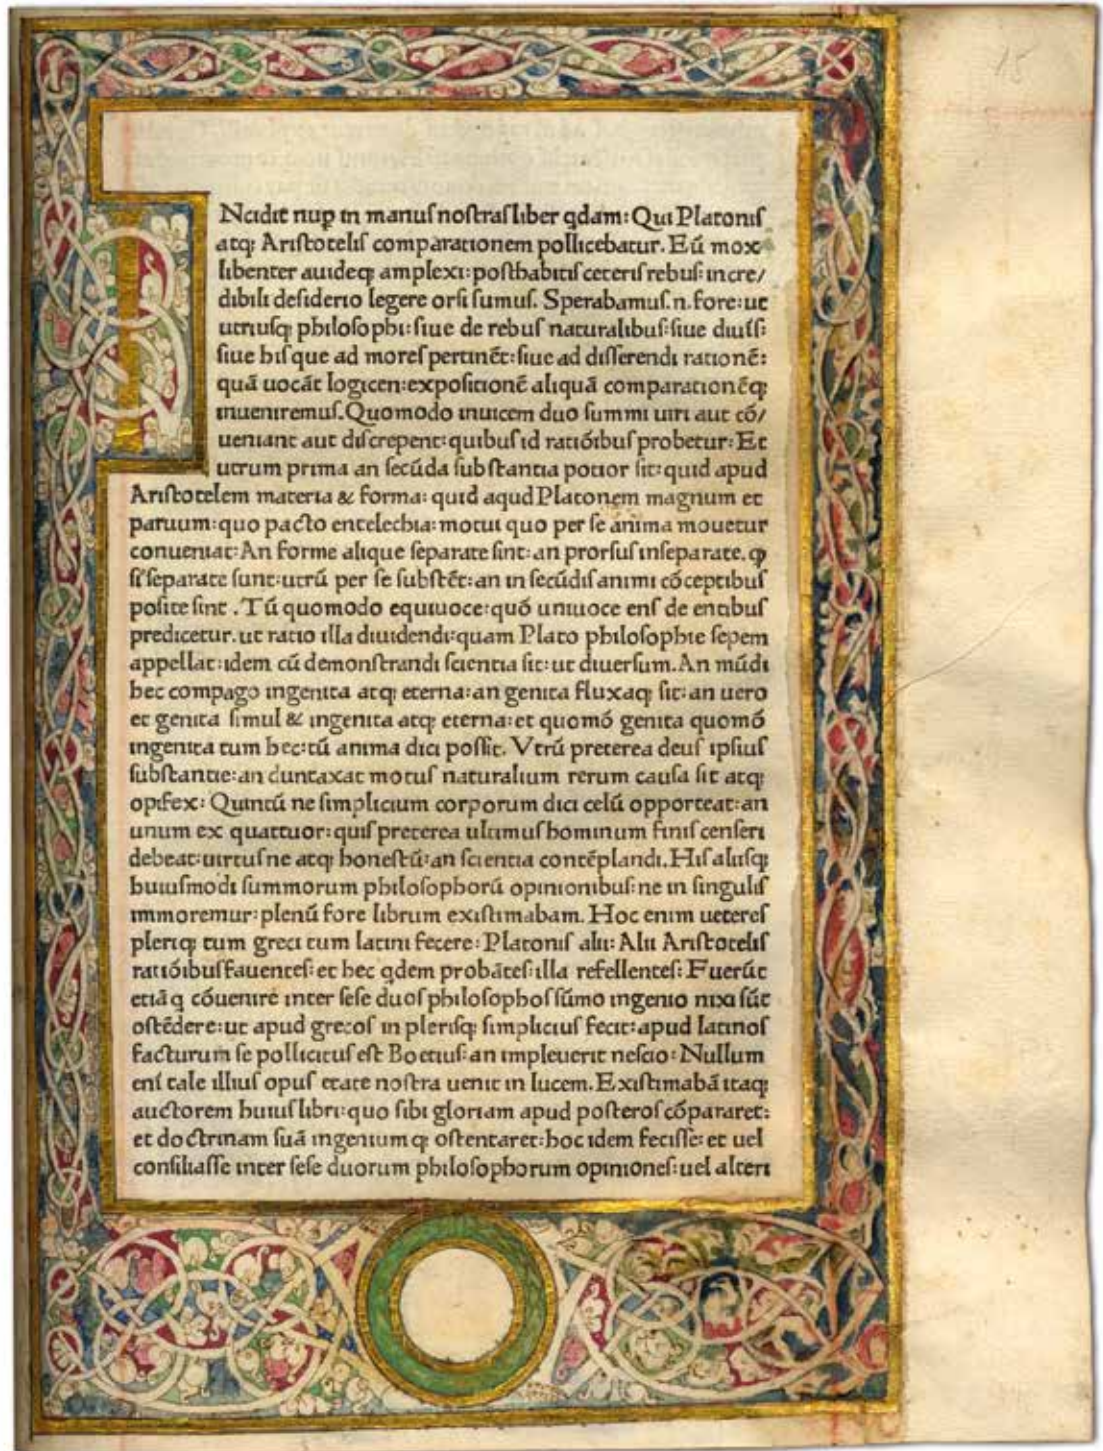 15
INcidit nuꝑ in manuſ noſtraſ liber qdam: Qui Platoniſ
atqꝫ Ariſtoteliſ comparationem pollicebatur. Eū mox
libenter auideqꝫ amplexi: poſthabitiſ ceteriſ rebuſ: incre/
dibili deſiderio legere orſi ſumuſ. Sperabamuſ.n. fore: ut
utriuſqꝫ philoſophi: ſiue de rebuſ naturalibuſ: ſiue diuīſ:
ſiue hiſ que ad moreſ pertinēt: ſiue ad diſſerendi rationē:
quā uocāt logicen: expoſitionē aliquā comparationēqꝫ
inueniremuſ. Quomodo inuicem duo ſummi uiri aut cō/
ueniant aut diſcrepent: quibuſ id ratiōibuſ probetur: Et
utrum prima an ſecūda ſubſtantia potior ſit: quid apud
Ariſtotelem materia & forma: quid aqud Platonem magnum et
paruum: quo pacto entelechia: motui quo per ſe anima mouetur
conueniat: An forme alique ſeparate ſint: an prorſuſ inſeparate. ꝙ
ſi ſeparate ſunt: utrū per ſe ſubſtēt: an in ſecūdiſ animi cōceptibuſ
poſite ſint. Tū quomodo equiuoce: quō uniuoce enſ de entibuſ
predicetur. ut ratio illa diuidendi: quam Plato philoſophie ſepem
appellat: idem cū demonſtrandi ſcientia ſit: ut diuerſum. An mūdi
hec compago ingenita atqꝫ eterna: an genita fluxaqꝫ ſit: an uero
et genita ſimul & ingenita atqꝫ eterna: et quomō genita quomō
ingenita tum hec: tū anima dici poſſit. Vtrū preterea deuſ ipſiuſ
ſubſtantie: an duntaxat motuſ naturalium rerum cauſa ſit atqꝫ
opifex: Quintū ne ſimplicium corporum dici celū opporteat: an
unum ex quattuor: quiſ preterea ultimuſ hominum finiſ cenſeri
debeat: uirtuſ ne atqꝫ honeſtū: an ſcientia contēplandi. Hiſ aliiſqꝫ
huiuſmodi ſummorum philoſophorū opinionibuſ: ne in ſinguliſ
immoremur: plenū fore librum exiſtimabam. Hoc enim uetereſ
pleriqꝫ tum greci tum latini fecere: Platoniſ alii: Alii Ariſtoteliſ
ratiōibuſ fauenteſ: et hec qdem probāteſ: illa refellenteſ: Fuerūt
etiā q cōuenire inter ſeſe duoſ philoſophoſ ſūmo ingenio nixi ſūt
oſtēdere: ut apud grecoſ in pleriſqꝫ ſimpliciuſ fecit: apud latinoſ
facturum ſe pollicituſ eſt Boetiuſ: an impleuerit neſcio: Nullum
enī tale illiuſ opuſ etate noſtra uenit in lucem. Exiſtimabā itaqꝫ
auctorem huiuſ libri: quo ſibi gloriam apud poſteroſ cōpararet:
et doctrinam ſuā ingeniumqꝫ oſtentaret: hoc idem feciſſe: et uel
conſiliaſſe inter ſeſe duorum philoſophorum opinioneſ: uel alteri